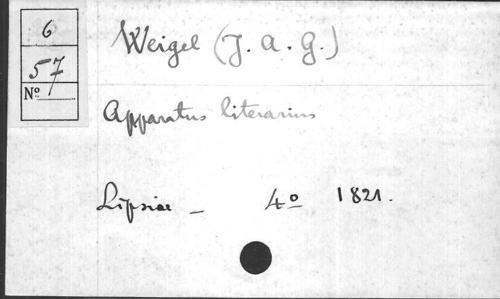 6
57
Nº
Weigel (J. A. G.)
Apparatus literarius
Lipsiae - 4º 1821.